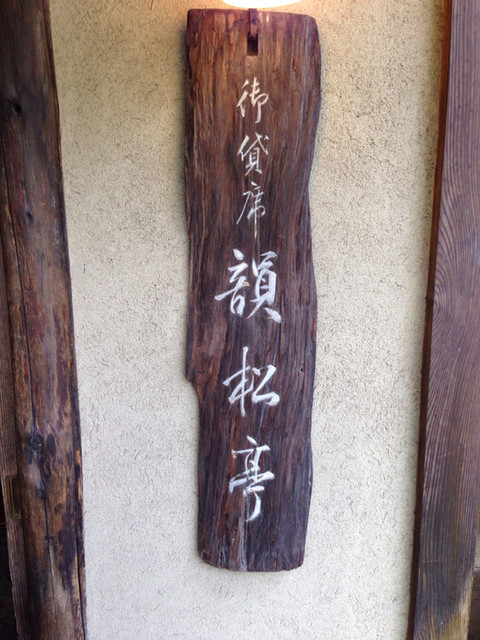 御貸席韻松亭